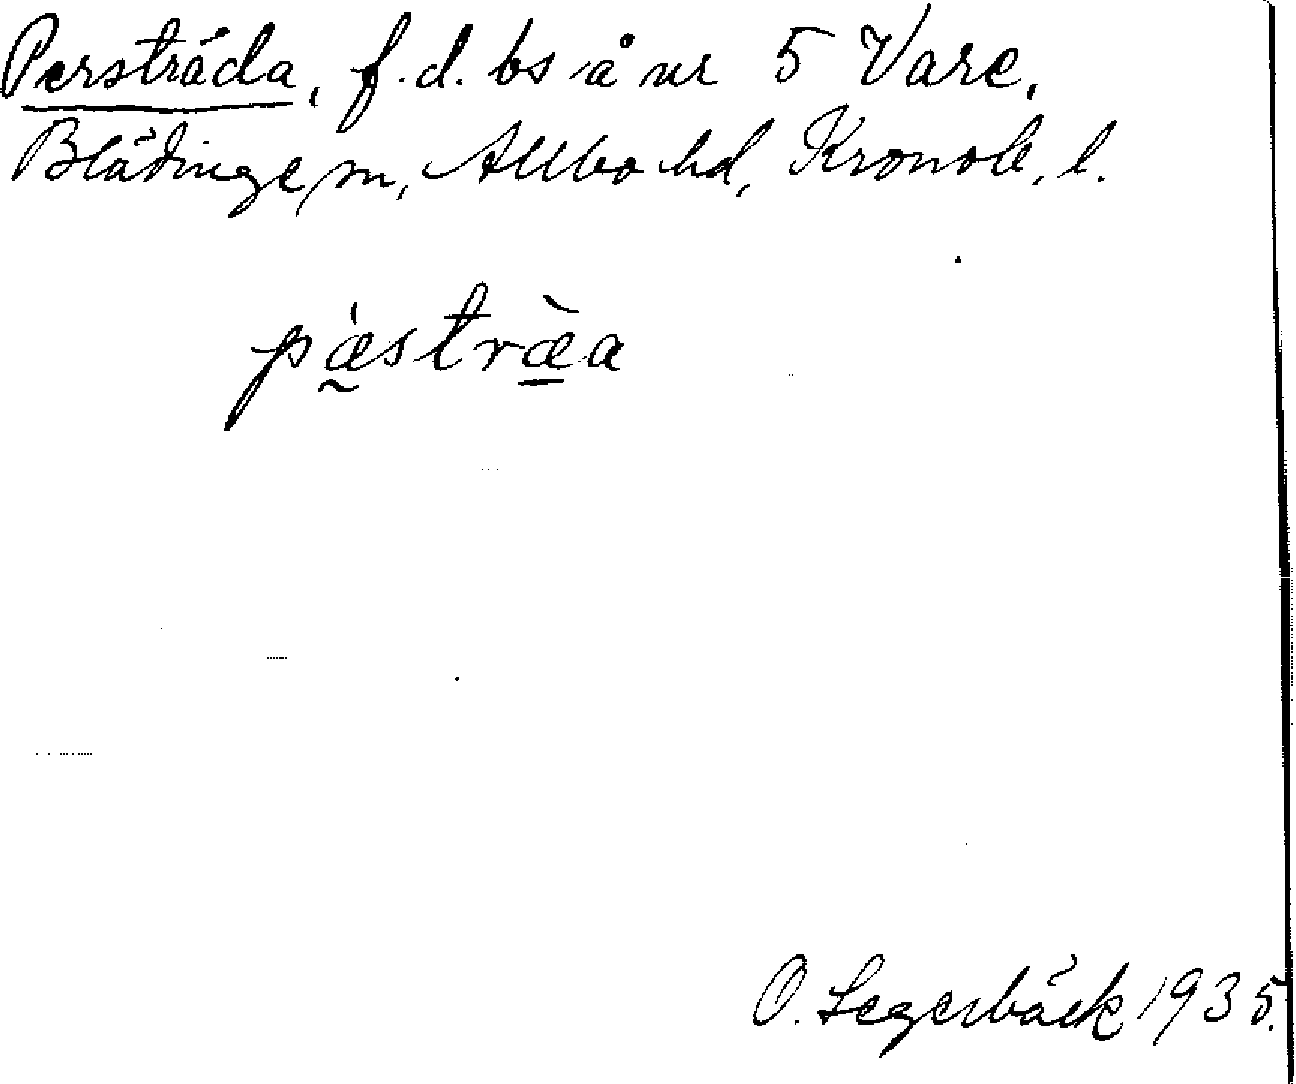 Persträda, f.d. bs å nr 5 Vare,
Blädinge sn, Allbo hd, Kronob. l.
pæ̀strä̀a
O. Legerbäck 1935.